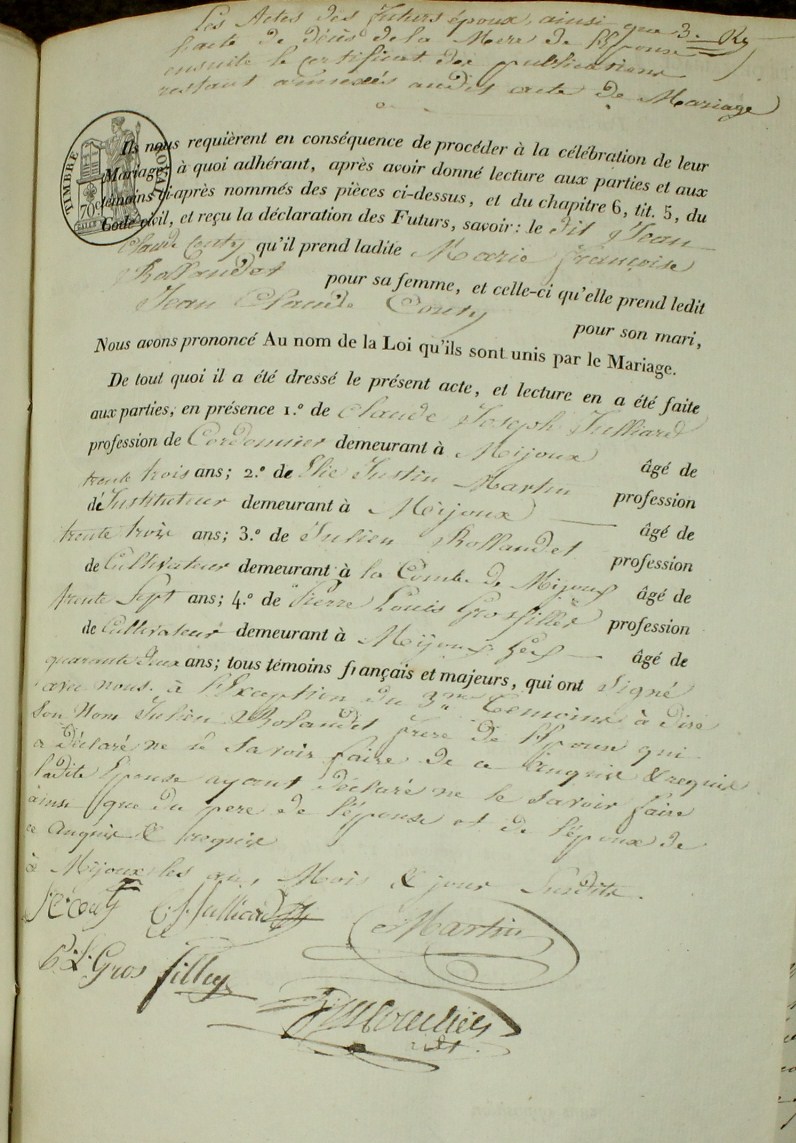 Les Actes des futurs époux ainsi que 3.
l'acte de décès de la Mere de l'Epouse
ensuite le certificat des publications
restant annexés audit acte de Mariage
TIMBRE ROYAL
70c
Ils nous requièrent en conséquence de procéder à la célébration de leur
Mariage; à quoi adhérant, après avoir donné lecture aux parties et aux
témoins ci-après nommés des pièces ci-dessus, et du chapitre 6, tit. 5, du
Code civil, et reçu la déclaration des Futurs, savoir: le dit Jean
Claude Couty qu'il prend ladite Marie françoise
Rollandet pour sa femme, et celle-ci qu'elle prend ledit
Jean Claude Couty pour son mari,
Nous avons prononcé Au nom de la Loi qu'ils sont unis par le Mariage.
De tout quoi il a été dressé le présent acte, et lecture en a été faite
aux parties, en présence 1.º de Claude Joseph Julliard
profession de Cordonnier demeurant à Mijoux âgé de
trente trois ans; 2.º de Elie Justin Martin profession
de Instituteur demeurant à Mijoux âgé de
trente trois ans; 3.º de Julien Rollandet profession
de Cultivateur demeurant à la Combe de Mijoux âgé de
trente Sept ans; 4.º de Pierre Louis Grosfilley profession
de Cultivateur demeurant à Mijoux Gex âgé de
quarante deux ans; tous témoins français et majeurs, qui ont Signé
avec nous à l'Exception du 3me Temoins à dire
Son Nom Julien Rolandet frere de l'Epouse qui
a Déclaré ne le Savoir faire de ce Enquis & requis
ladite Epouse ayant Déclaré ne le Savoir faire
ainsi que du pere de l'épouse et de l'époux de
ce Enquis & requis
à Mijoux les an, Mois & jour Susdits.
J C Couty C J Julliard Martin
P. L. Gros filley